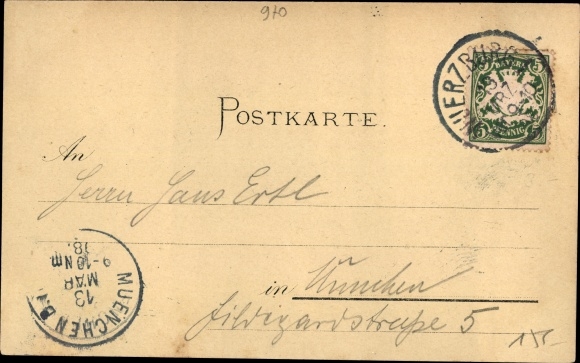 970
WUERZBURG
BAYERN
5 5
PFENNIG
POSTKARTE.
An
Herrn Hans Ertl
in München
Hildegardstraße 5
MUENCHEN
13
MAR
9-10 Nm
98.